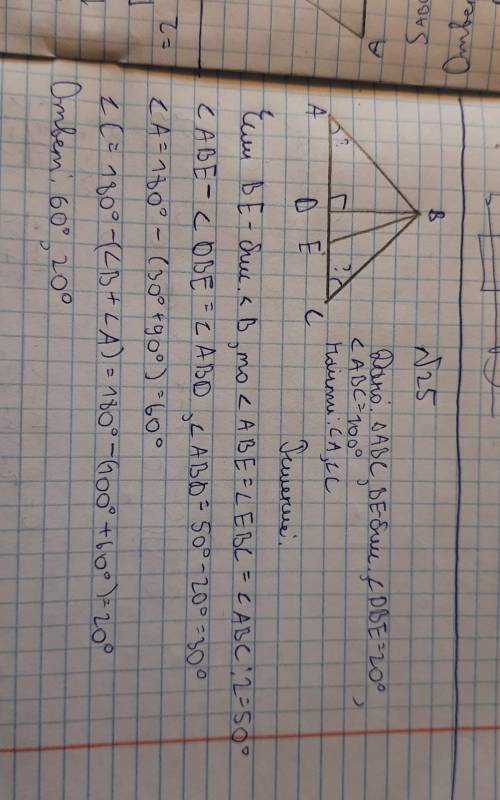 №25
Дано: ΔABC, BE-бис., ∠DBE=20°,
∠ABC=100°,
Найти: ∠A, ∠C
B
A ? D E ? C
Решение:
Если BE-бис. ∠B, то ∠ABE=∠EBC=∠ABC:2=50°
∠ABE-∠DBE=∠ABD, ∠ABD=50°-20°=30°
∠A=180°-(30°+90°)=60°
∠C=180°-(∠B+∠A)=180°-(100°+60°)=20°
Ответ: 60°, 20°